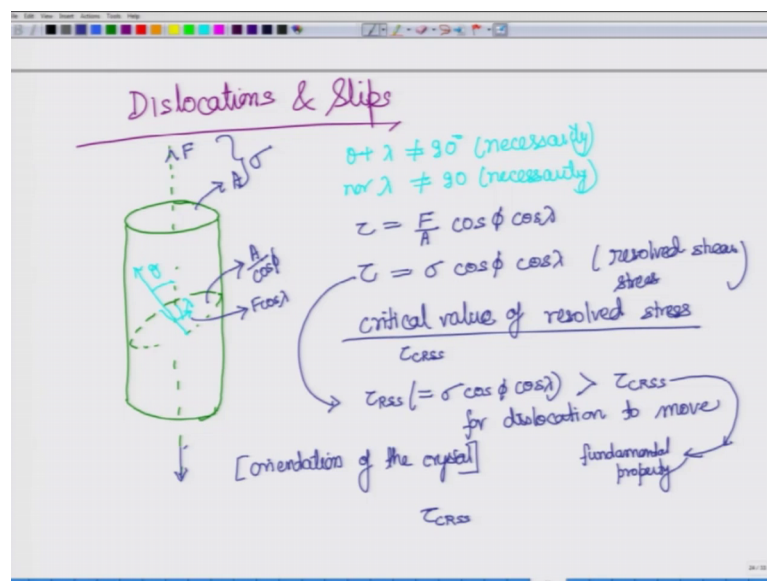 File Edit View Insert Actions Tools Help
Dislocations & Slips
F
σ
A
θ + λ ≠ 90° (necessarily)
nor λ ≠ 90 (necessarily)
τ = F/A cos ϕ cos λ
τ = σ cos ϕ cos λ (resolved shear stress)
A/cosϕ
Fcosλ
θ
λ
critical value of resolved stress
τCRSS
τRSS (= σ cos ϕ cos λ) > τCRSS
for dislocation to move
fundamental
property
[orientation of the crystal]
τCRSS